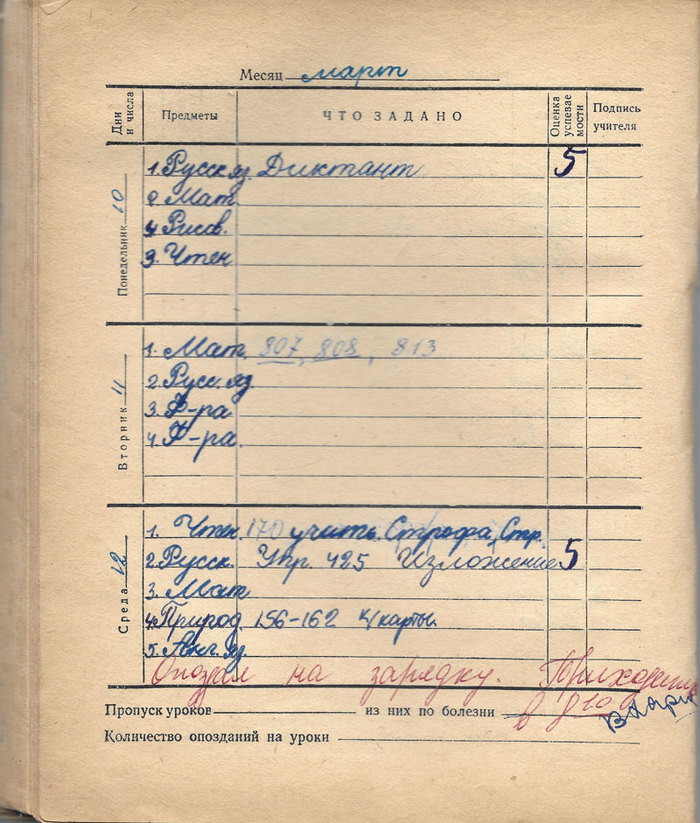 Месяц март
Дни и числа Предметы ЧТО ЗАДАНО Оценка успеваемости Подпись учителя
Понедельник 10
1. Русск яз. Диктант 5
2 Мат.
4 Рисов.
3. Чтен
Вторник 11
1. Мат. 807, 808, 813
2. Русс. яз
3. Ф-ра
4. Ф-ра.
Среда 12
1. Чтен. 170 учить. Строфа, Стр.
2. Русск. Упр. 425 Изложение 5
3. Мат
4. Природ. 156-162 к/карты.
5. Анг. яз.
Опоздал на зарядку. Приходить
в 8 10
Пропуск уроков из них по болезни
Количество опозданий на уроки